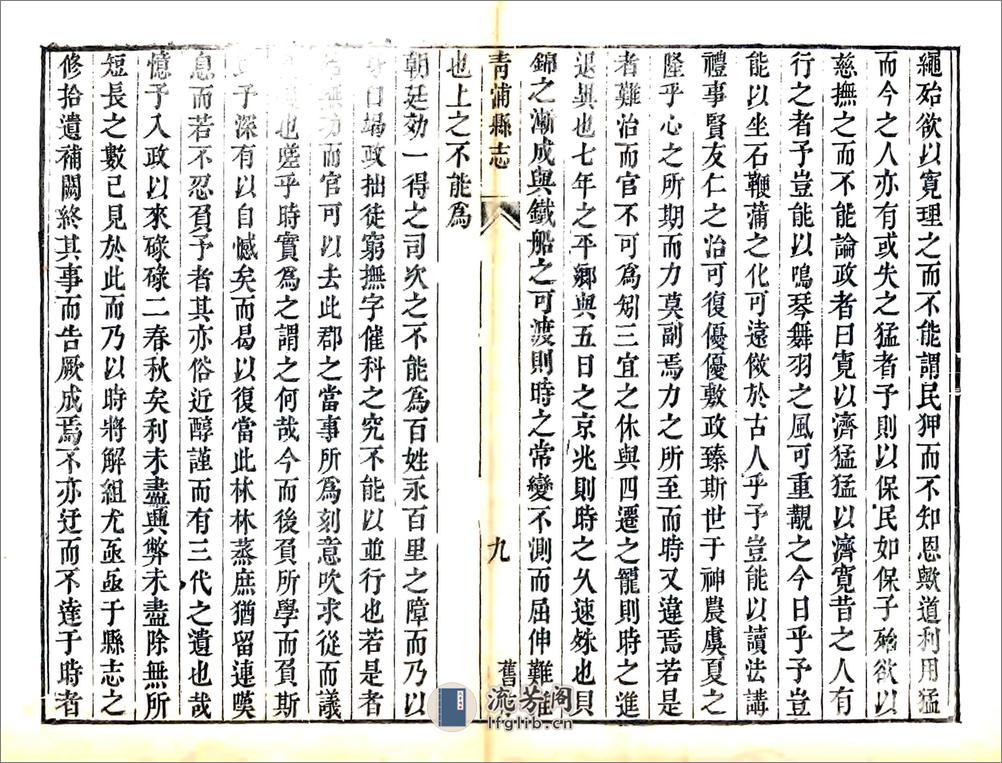 繩殆欲以寬理之而不能謂民狎而不知恩歟道利用猛
而今之人亦有或失之猛者予則以保民如保子殆欲以
慈撫之而不能論政者曰寬以濟猛猛以濟寬昔之人有
行之者予豈能以鳴琴舞羽之風可重覩之今日乎予豈
能以坐石鞭蒲之化可遠倣於古人乎予豈能以讀法講
禮事賢友仁之治可復優優敷政臻斯世于神農虞夏之
隆乎心之所期而力莫副焉力之所至而時又違焉若是
者難治而官不可為矧三宜之休與四遷之寵則時之進
退與也七年之平鄉與五日之京兆則時之久速殊也貝
錦之漸成與鐵船之可渡則時之常變不測而屈伸難
青浦縣志
九
舊
也上之不能為
朝廷効一得之司次之不能為百姓永百里之障而乃以
口竭政拙徒窮撫字催科之究不能以並行也若是者
功而官可以去此郡之當事所為刻意吹求從而議
也嗟乎時實為之謂之何哉今而後負所學而負斯
予深有以自憾矣而曷以復當此林林蒸庶猶留連嘆
息而若不忍負予者其亦俗近醇謹而有三代之遺也哉
憶予入政以來碌碌二春秋矣利未盡興弊未盡除無所
短長之數已見於此而乃以時將解組尤亟亟于縣志之
修拾遺補闕終其事而告厥成焉不亦迂而不達于時者
流芳阁
lfglib.com